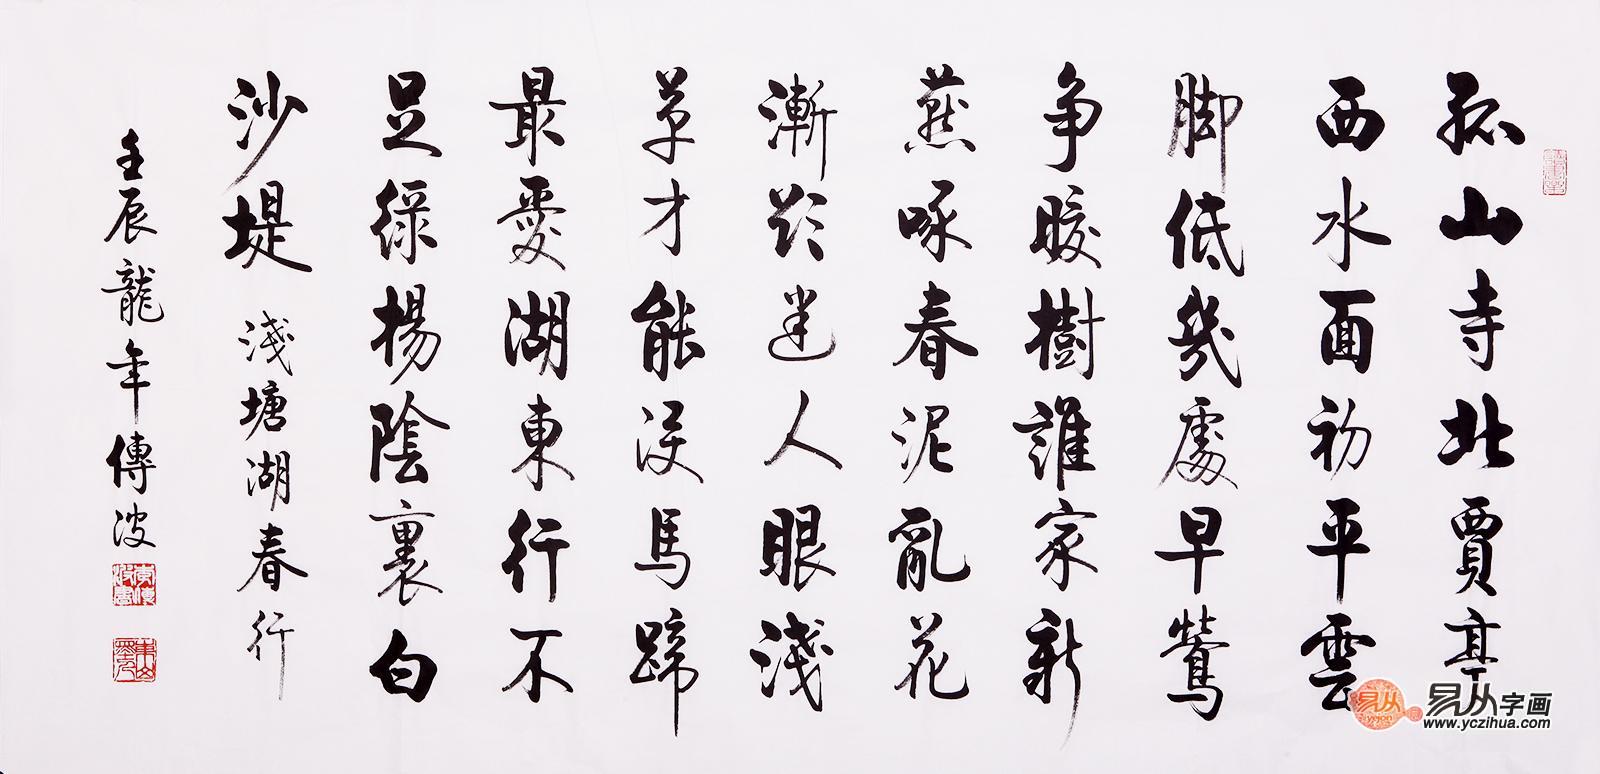 孤山寺北賈亭
西水面初平雲
脚低幾處早鶯
争暖樹誰家新
燕啄春泥亂花
漸欲迷人眼淺
草才能没馬蹄
最愛湖東行不
足綠楊陰裏白
沙堤 淺塘湖春行
壬辰龍年傳波
易从
易从字画
www.yczihua.com